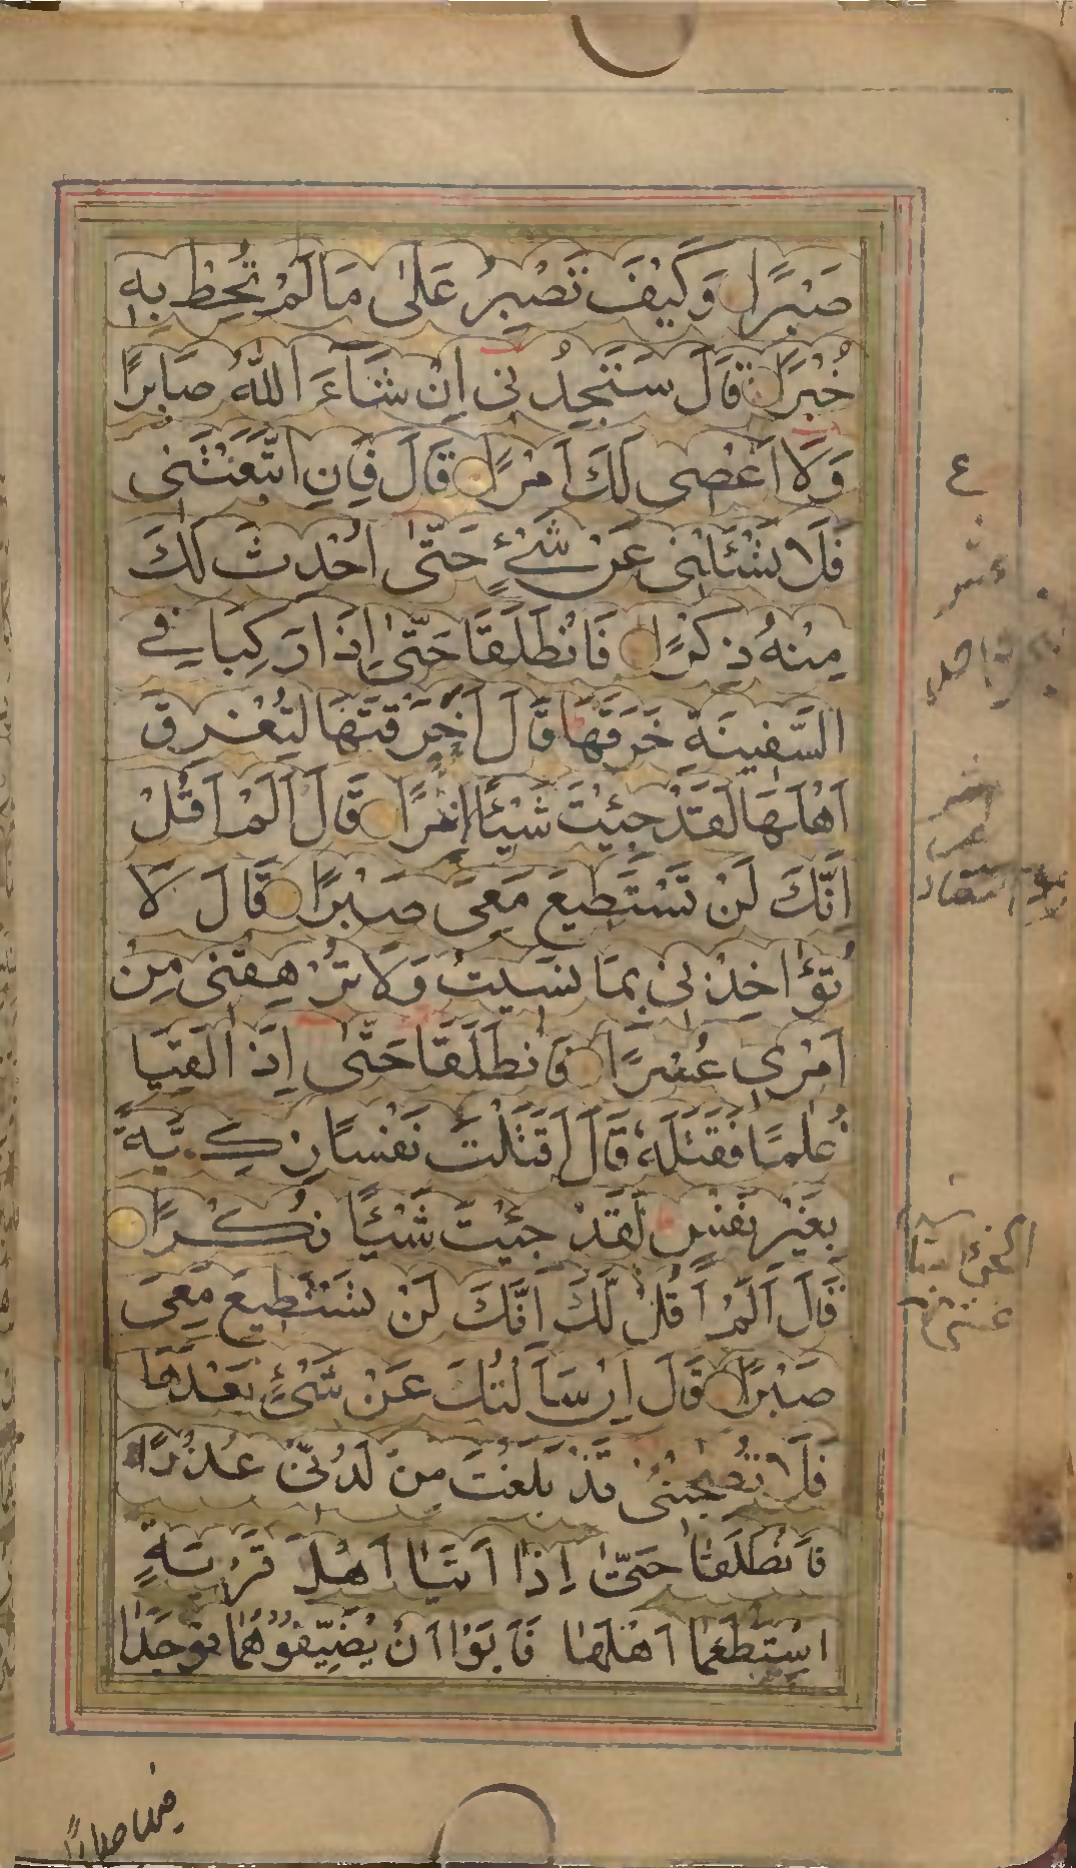 صَبْرًا وَكَيْفَ تَصْبِرُ عَلٰى مَا لَمْ تُحِطْ بِهٖ
خُبْرًا قَالَ سَتَجِدُنِى اِنْ شَآءَ اللّٰهُ صَابِرًا
وَلَا اَعْصِى لَكَ اَمْرًا قَالَ فَاِنِ اتَّبَعْتَنِى
فَلَا تَسْئَلْنِى عَنْ شَىْءٍ حَتّٰى اُحْدِثَ لَكَ
مِنْهُ ذِكْرًا فَانْطَلَقَا حَتّٰى اِذَا رَكِبَا فِى
السَّفِينَةِ خَرَقَهَا قَالَ اَخَرَقْتَهَا لِتُغْرِقَ
اَهْلَهَا لَقَدْ جِئْتَ شَيْئًا اِمْرًا قَالَ اَلَمْ اَقُلْ
اِنَّكَ لَنْ تَسْتَطِيعَ مَعِىَ صَبْرًا قَالَ لَا
تُؤَاخِذْنِى بِمَا نَسِيتُ وَلَا تُرْهِقْنِى مِنْ
اَمْرِى عُسْرًا فَانْطَلَقَا حَتّٰى اِذَا لَقِيَا
غُلٰمًا فَقَتَلَهٗ قَالَ اَقَتَلْتَ نَفْسًا زَكِيَّةً
بِغَيْرِ نَفْسٍ لَقَدْ جِئْتَ شَيْئًا نُكْرًا
قَالَ اَلَمْ اَقُلْ لَّكَ اِنَّكَ لَنْ تَسْتَطِيعَ مَعِىَ
صَبْرًا قَالَ اِنْ سَاَلْتُكَ عَنْ شَىْءٍ بَعْدَهَا
فَلَا تُصٰحِبْنِى قَدْ بَلَغْتَ مِنْ لَدُنِّى عُذْرًا
فَانْطَلَقَا حَتّٰى اِذَا اَتَيَا اَهْلَ قَرْيَةٍ
اسْتَطْعَمَا اَهْلَهَا فَاَبَوْا اَنْ يُضَيِّفُوْهُمَا فَوَجَدَا
ع
فيها جدارًا